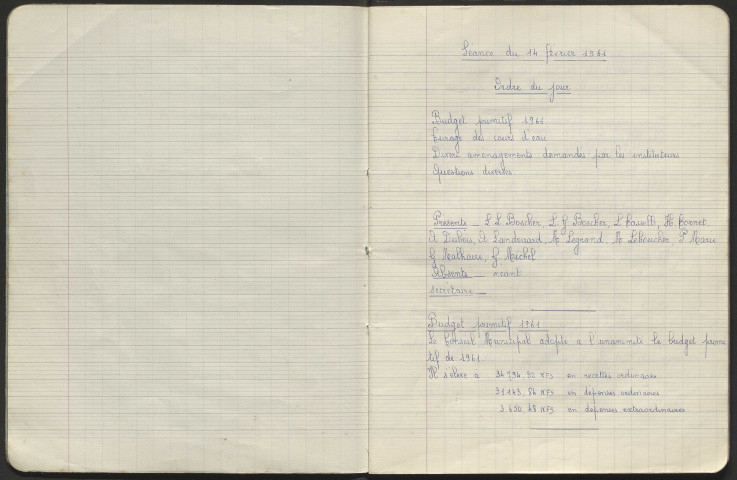 Séance du 14 février 1961
Ordre du jour
Budget primitif 1961
Curage des cours d'eau
Divers aménagements demandés par les instituteurs
Questions diverses
Présents _ L L Boscher, L. G Boscher, L. H Cornet
A Dubois, A Landouard, M Legrand, M Leboucher, P Marie
G Malhaire, G Michel
Absents _ néant
secrétaire _
Budget primitif 1961
Le Conseil Municipal adopte à l'unanimité le budget primi
tif de 1961
Il s'élève à 34 794, 32 NFS en recettes ordinaires
31 143, 84 NFS en dépenses ordinaires
3 650 48 NFS en dépenses extraordinaires